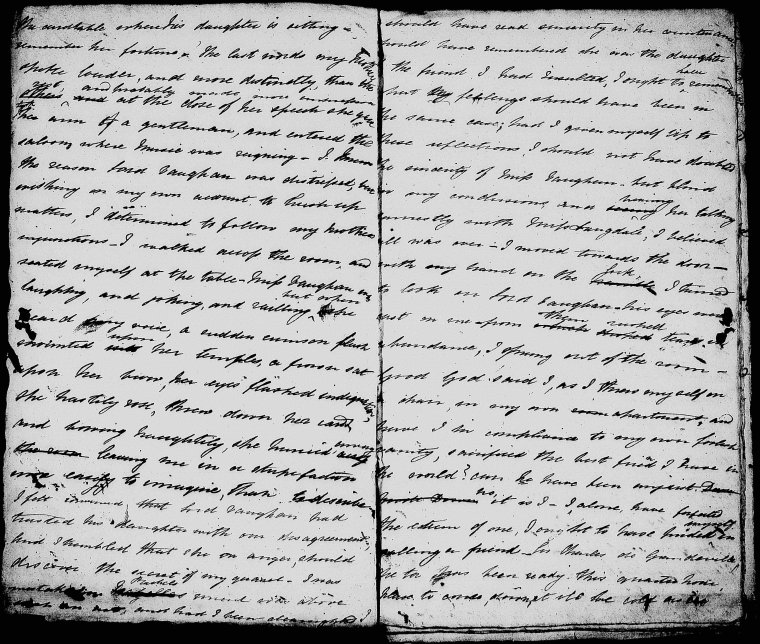 the constable where his daughter is sitting -
remember her fortune. The last words my Mother
spoke louder, and more distinctly, than the
and probably
and at the close of her speech she
the arm of a gentleman, and entered the
saloon, where Music was reigning - I knew
the reason Lord Vaughan was distressed, but
wishing on my own account to hush up
matters, I determined to follow my Mother's
injunctions - I walked across the room, and
seated myself at the table - Miss Vaughan was
laughing, and joking, and railing but upon
heard my voice, a sudden crimson flush
upon
her temples, a frown sat
upon her brow, her eyes flashed indignation,
she hastily rose, threw down her cards
and bowing haughtily, she hurried away
leaving me in a stupefaction
more easily to imagine, than to describe.
I felt convinced that Lord Vaughan had
trusted his daughter with our disagreement,
and I trembled that she in anger, should
discover the secret of my quarrel - I was
mistaken Miss Vaughan's mind was above
such an act, and had I been I
should have read sincerity in her countenance
would have remembered she was the daughter
the friend I had insulted, I ought to have remembered
that feelings should have been in
the same case; had I given myself up to
these reflections I should not have doubted
the sincerity of Miss Vaughan - but blind
in my conclusions, and hearing her talking
earnestly with Miss Langdale; I believed
all was over - I moved towards the door -
with my hand on the lock I turned
to look on Lord Vaughan - his eyes were
cast on me - from them rushed tears in
abundance, I sprung out of the room -
Good God said I, as I threw myself on
a chair, in my own apartment, and
have I in compliance to my own foolish
vanity, sacrificed the best friend I have in
the world? can he have been unjust
no, it is I - I, alone, have
the esteem of one, I ought to have prided myself in
calling a friend - Sir Charles de Grandville,
has been ready this quarter hour
to come down, it is the